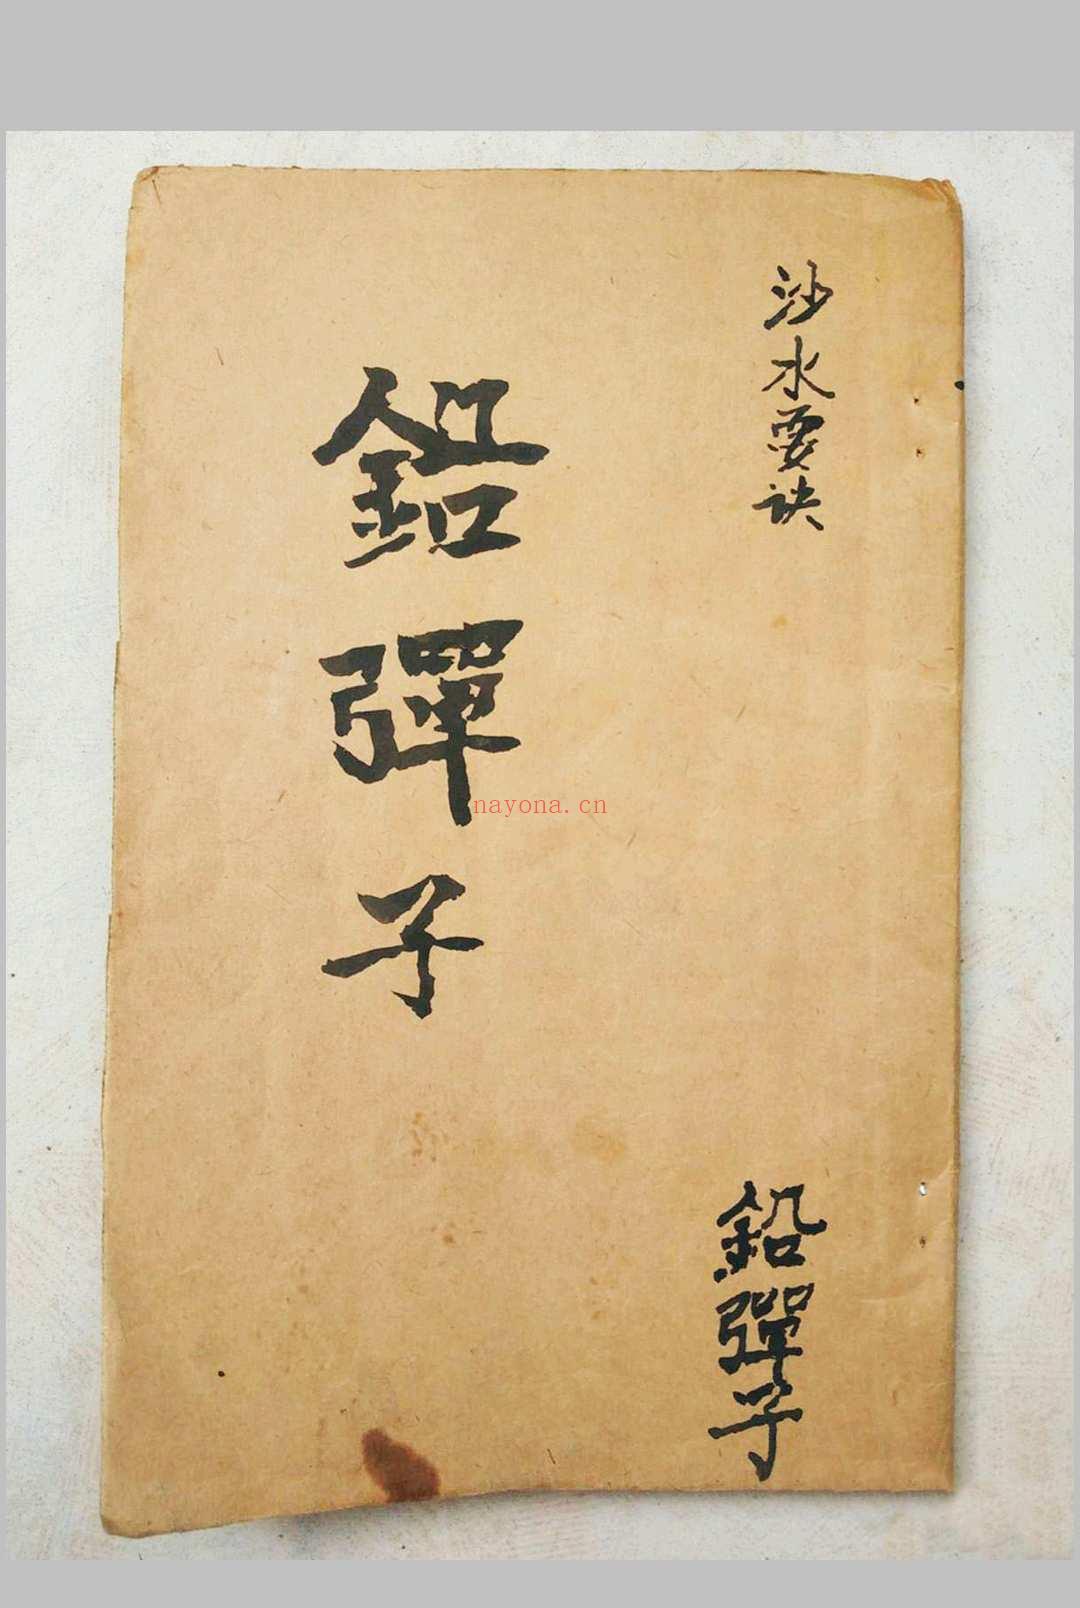 沙水要诀
鉛彈子
鉛彈子
nayona.cn